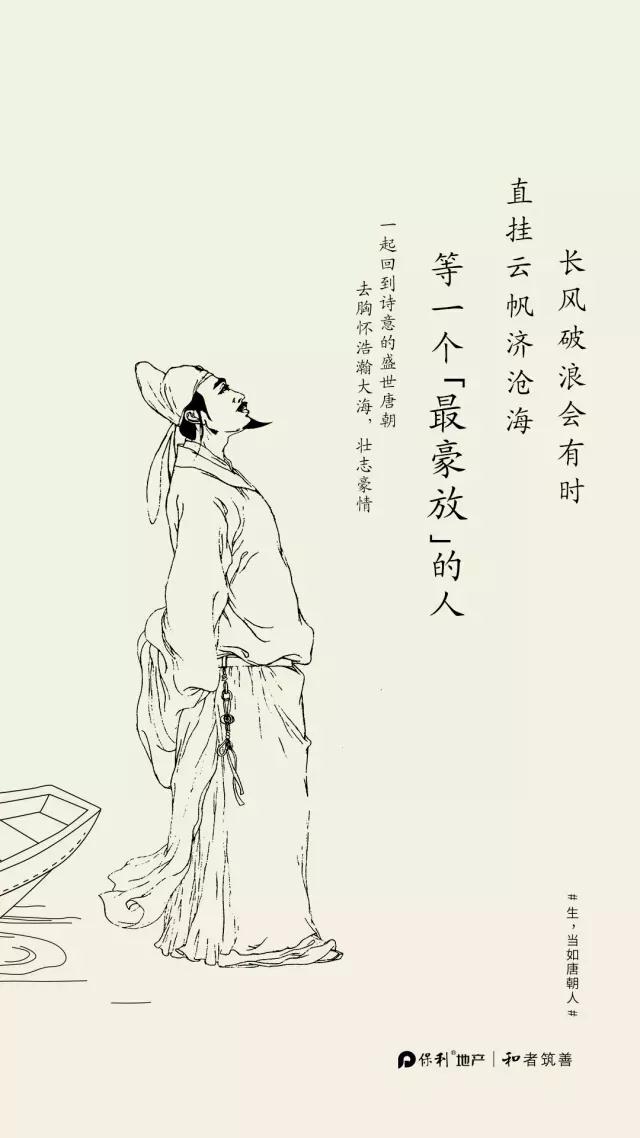 长风破浪会有时
直挂云帆济沧海
等一个「最豪放」的人
一起回到诗意的盛世唐朝
去胸怀浩瀚大海，壮志豪情
#生，当如唐朝人#
保利®地产 | 和者筑善